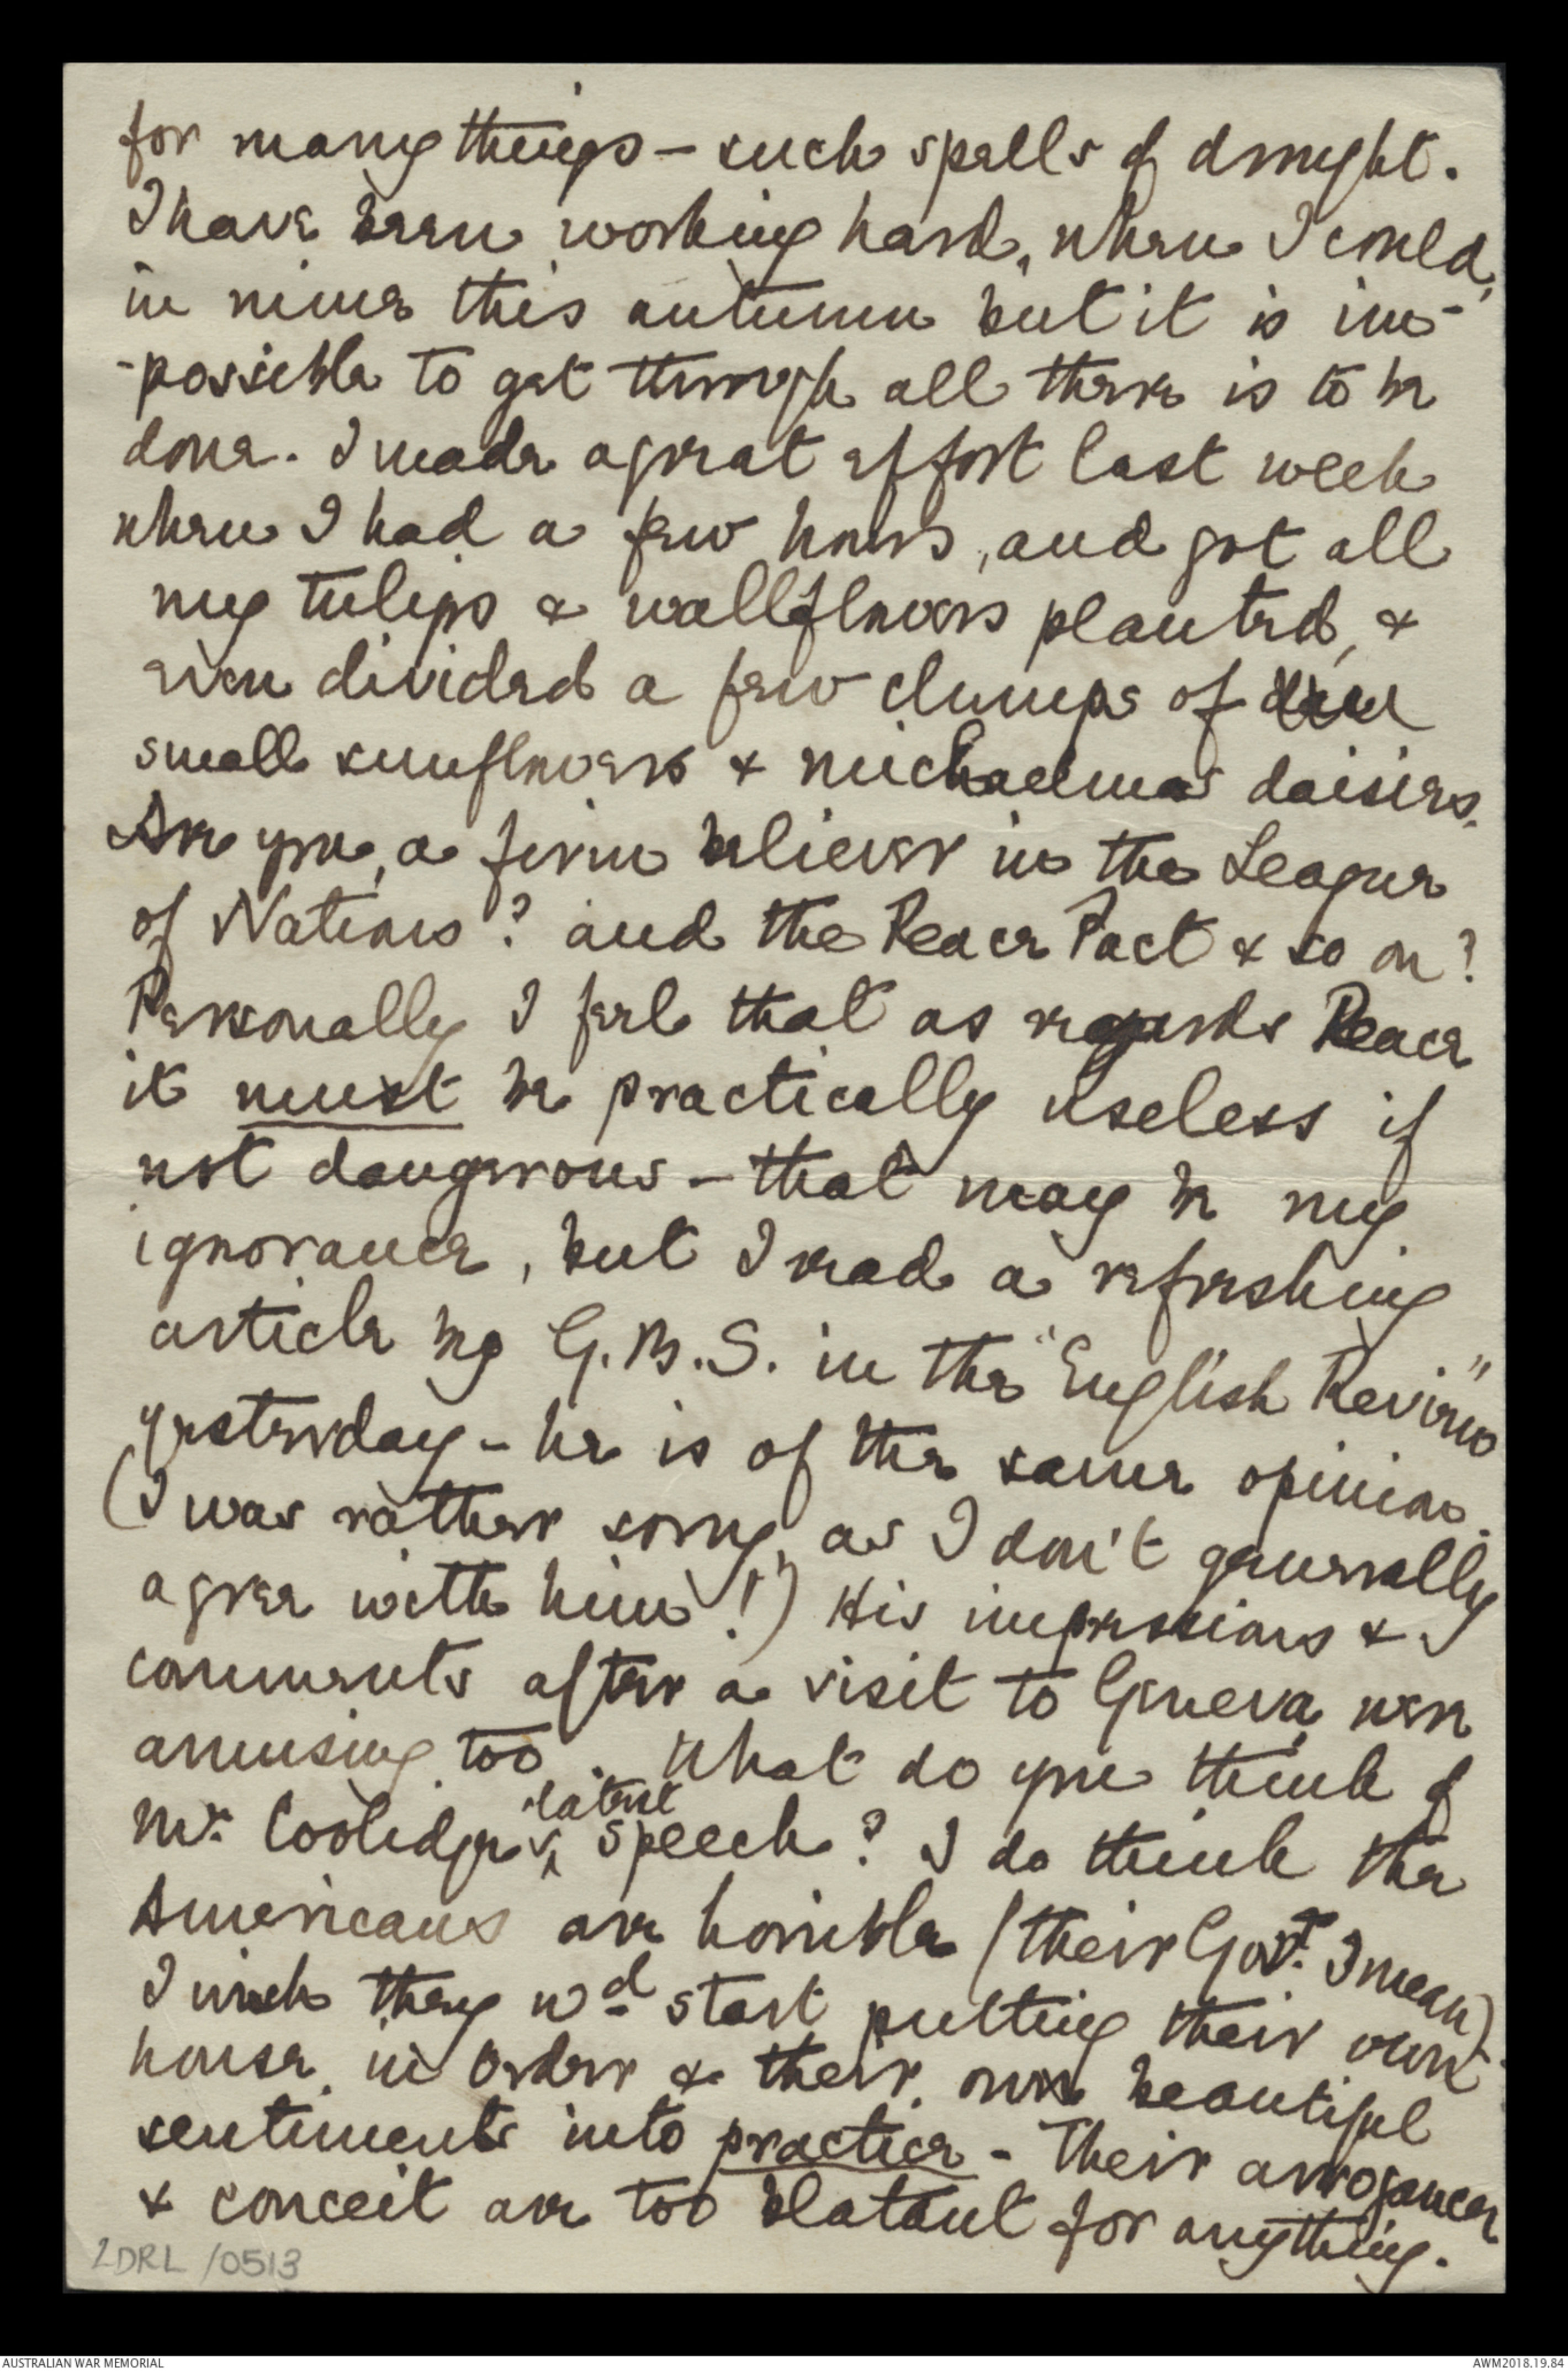 for many things - such spells of drought.
I have been working hard, when I could,
in mine this autumn but it is im-
-possible to get through all there is to be
done. I made a great effort last week
when I had a few hours, and got all
my tulips & wallflowers planted, &
even divided a few clumps of
small sunflowers & michaelmas daisies.
Are you, a firm believer in the League
of Nations? and the Peace Pact & so on?
Personally I feel that as regards Peace
it must be practically useless if
not dangerous - that may be my
ignorance, but I read a refreshing
article by G.B.S. in the "English Review"
yesterday - he is of the same opinion.
(I was rather sorry, as I don't generally
agree with him!) His impressions &
comments after a visit to Geneva were
amusing too. What do you think of
Mr. Coolidge's latest speech? I do think the
Americans are horrible (their Govt. I mean)
I wish they wd start putting their own
house in order & their own beautiful
sentiments into practice - Their arrogance
& conceit are too blatant for anything.
2DRL/0513
AUSTRALIAN WAR MEMORIAL
AWM2018.19.84